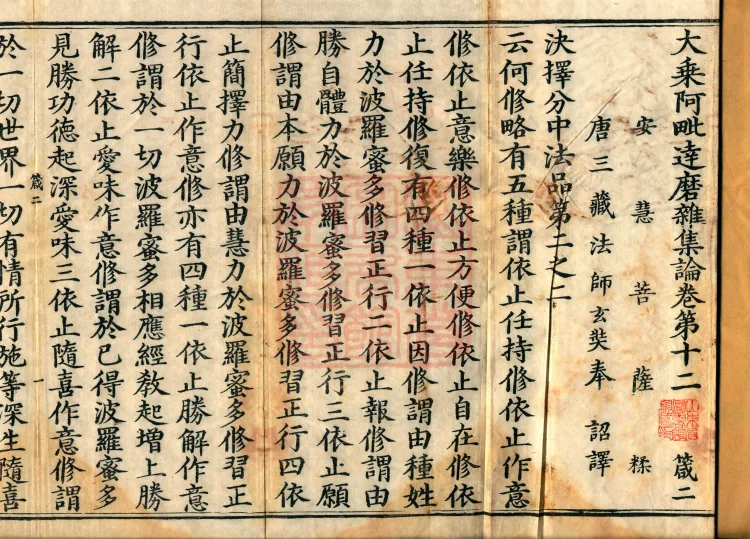 大乘阿毗達磨雜集論卷第十二 箴二
安慧菩薩糅
唐三藏法師玄奘奉 詔譯
決擇分中法品第二之二
云何修略有五種謂依止任持修依止作意
修依止意樂修依止方便修依止自在修依
止任持修復有四種一依止因修謂由種姓
力於波羅蜜多修習正行二依止報修謂由
勝自體力於波羅蜜多修習正行三依止願
修謂由本願力於波羅蜜多修習正行四依
止簡擇力修謂由慧力於波羅蜜多修習正
行依止作意修亦有四種一依止勝解作意
修謂於一切波羅蜜多相應經教起增上勝
解二依止愛味作意修謂於已得波羅蜜多
見勝功德起深愛味三依止隨喜作意修謂
箴二 一
於一切世界一切有情所行施等深生隨喜